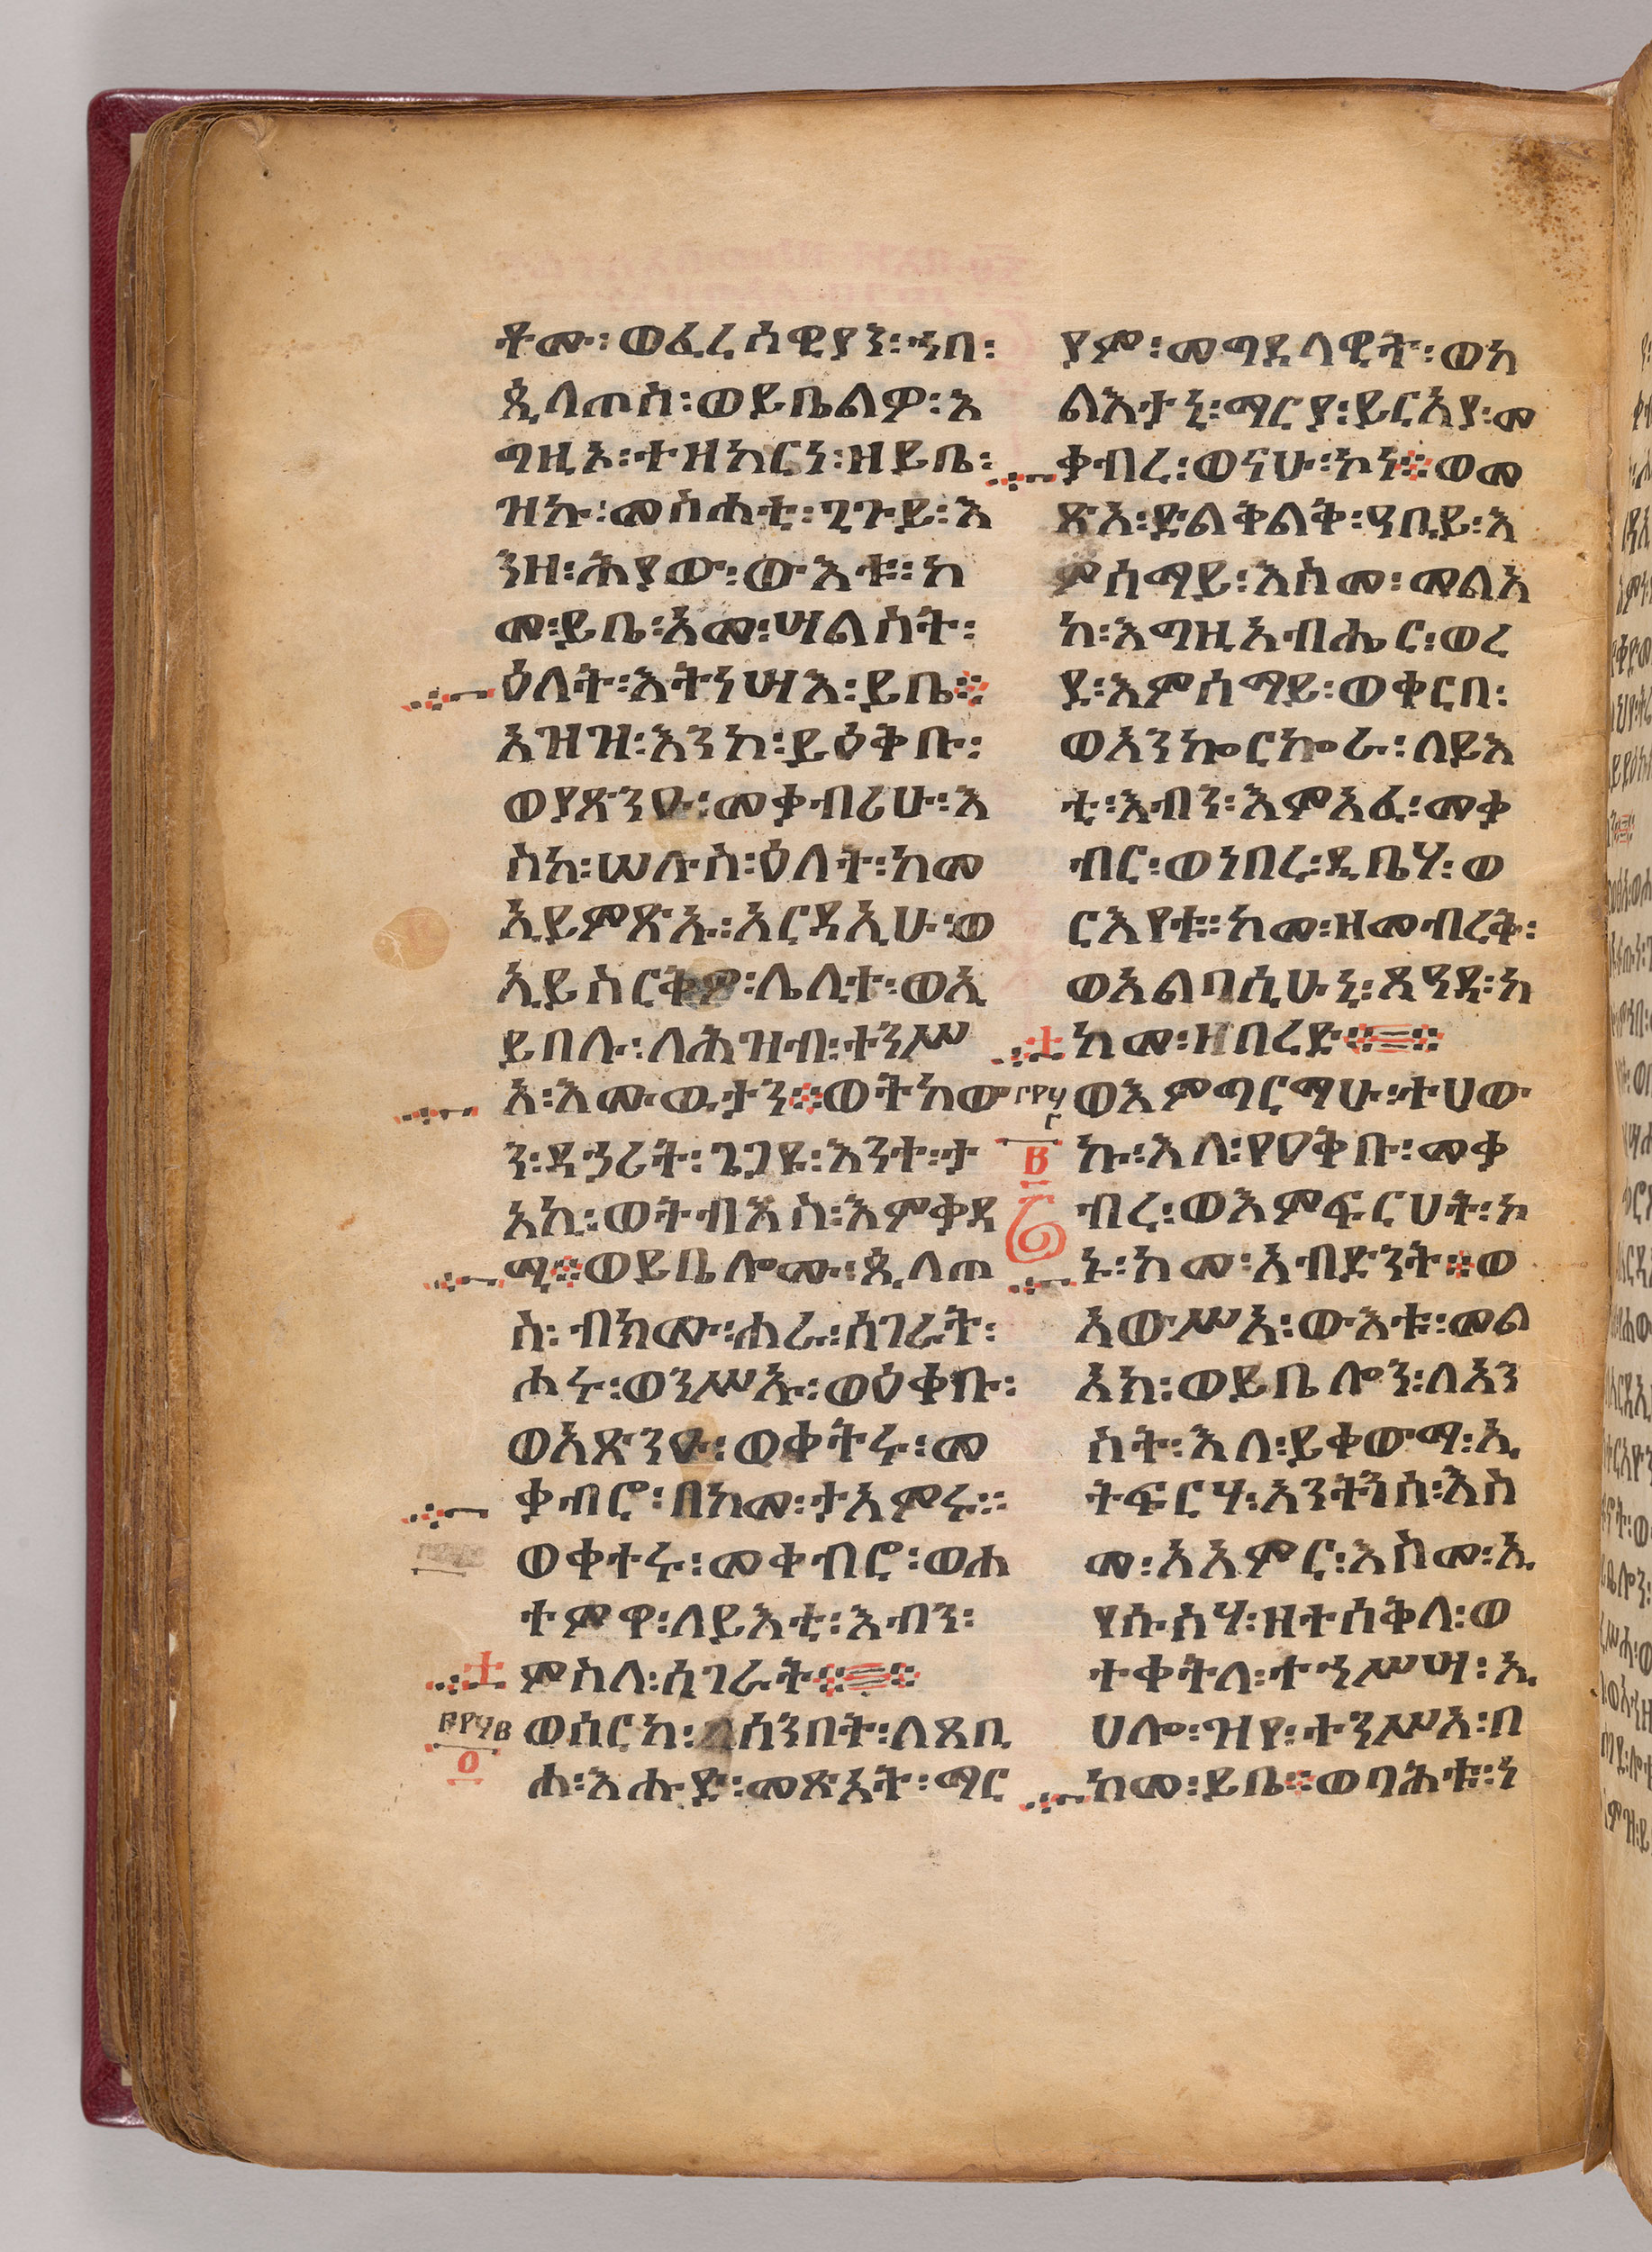 ቶሙ፡ወፈሪሳዊያን፡ኀበ፡
ጲላጦስ፡ወይቤልዎ፡እ
ግዚኦ፡ተዘከርነ፡ዘይቤ፡
ዝኩ፡መስሐቲ፡ጊጉይ፡እ
ንዘ፡ሕያው፡ውእቱ፡ከ
መ፡ይቤ፡አመ፡ሣልስት፡
ዕለት፡እትነሣእ፡ይቤ፨
አዝዝ፡እንከ፡ይዕቅቡ፡
ወያጽንዑ፡መቃብሪሁ፡እ
ስከ፡ሠሉስ፡ዕለት፡ከመ
ኢይምጽኡ፡አርዳኢሁ፡ወ
ኢይስርቅዎ፡ሌሊተ፡ወኢ
ይበሉ፡ለሕዝብ፡ተንሥ
አ፡እሙዉታን፨ወትከው
ን፡ዳኃሪት፡ጌጋዩ፡እንተ፡ታ
አኪ፡ወትብእስ፡እምቃዳ
ሚ፨ወይቤሎሙ፡ጲላጦ
ስ፡ብክሙ፡ሐራ፡ሰገራት፡
ሑሩ፡ወንሥኡ፡ወዕቀቡ፡
ወአጽንዑ፡ወቀትሩ፡መ
ቃብሮ፡በከመ፡ታአምሩ።
ወቀተሩ፡መቃብሮ፡ወሐ
ተምዋ፡ለይእቲ፡እብን፡
ምስለ፡ሰገራት፨
ወሰርከ፡ለሰንበት፡ለጸቢ
ሐ፡እሑድ፡መጽአት፡ማር
ያም፡መግደላዊት፡ወካ
ልእታኒ፡ማርያ፡ይርአያ፡መ
ቃብረ፡ወናሁ፡ኮነ፨ወመ
ጽአ፡ድልቅልቅ፡ዓቢይ፡እ
ምሰማይ፡እስመ፡መልአ
ከ፡እግዚአብሔር፡ወረ
ደ፡እምሰማይ፡ወቀርበ፡
ወአንኰርኰራ፡ለይእ
ቲ፡እብን፡እምአፈ፡መቃ
ብር፡ወነበረ፡ዲቤሃ፡ወ
ርእየቱ፡ከመ፡ዘመብረቅ፡
ወአልባሲሁኒ፡ጸዓዳ፡ከ
ከመ፡ዘበረድ፨
ወእምግርማሁ፡ተሀው
ኩ፡እለ፡የዐቅቡ፡መቃ
ብረ፡ወእምፍርሀት፡ኮ
ኑ፡ከመ፡አብድንት፨ወ
አውሥአ፡ውእቱ፡መል
አክ፡ወይቤሎን፡ለአን
ስት፡እለ፡ይቀውማ፡ኢ
ትፍርሃ፡አንትንሰ፡እስ
መ፡አአምር፡እስመ፡ኢ
የሱስሃ፡ዘተሰቅለ፡ወ
ተቀትለ፡ተኀሥሣ፡ኢ
ሀሎ፡ዝየ፡ተንሥአ፡በ
ከመ፡ይቤ፨ወባሕቱ፡ነ